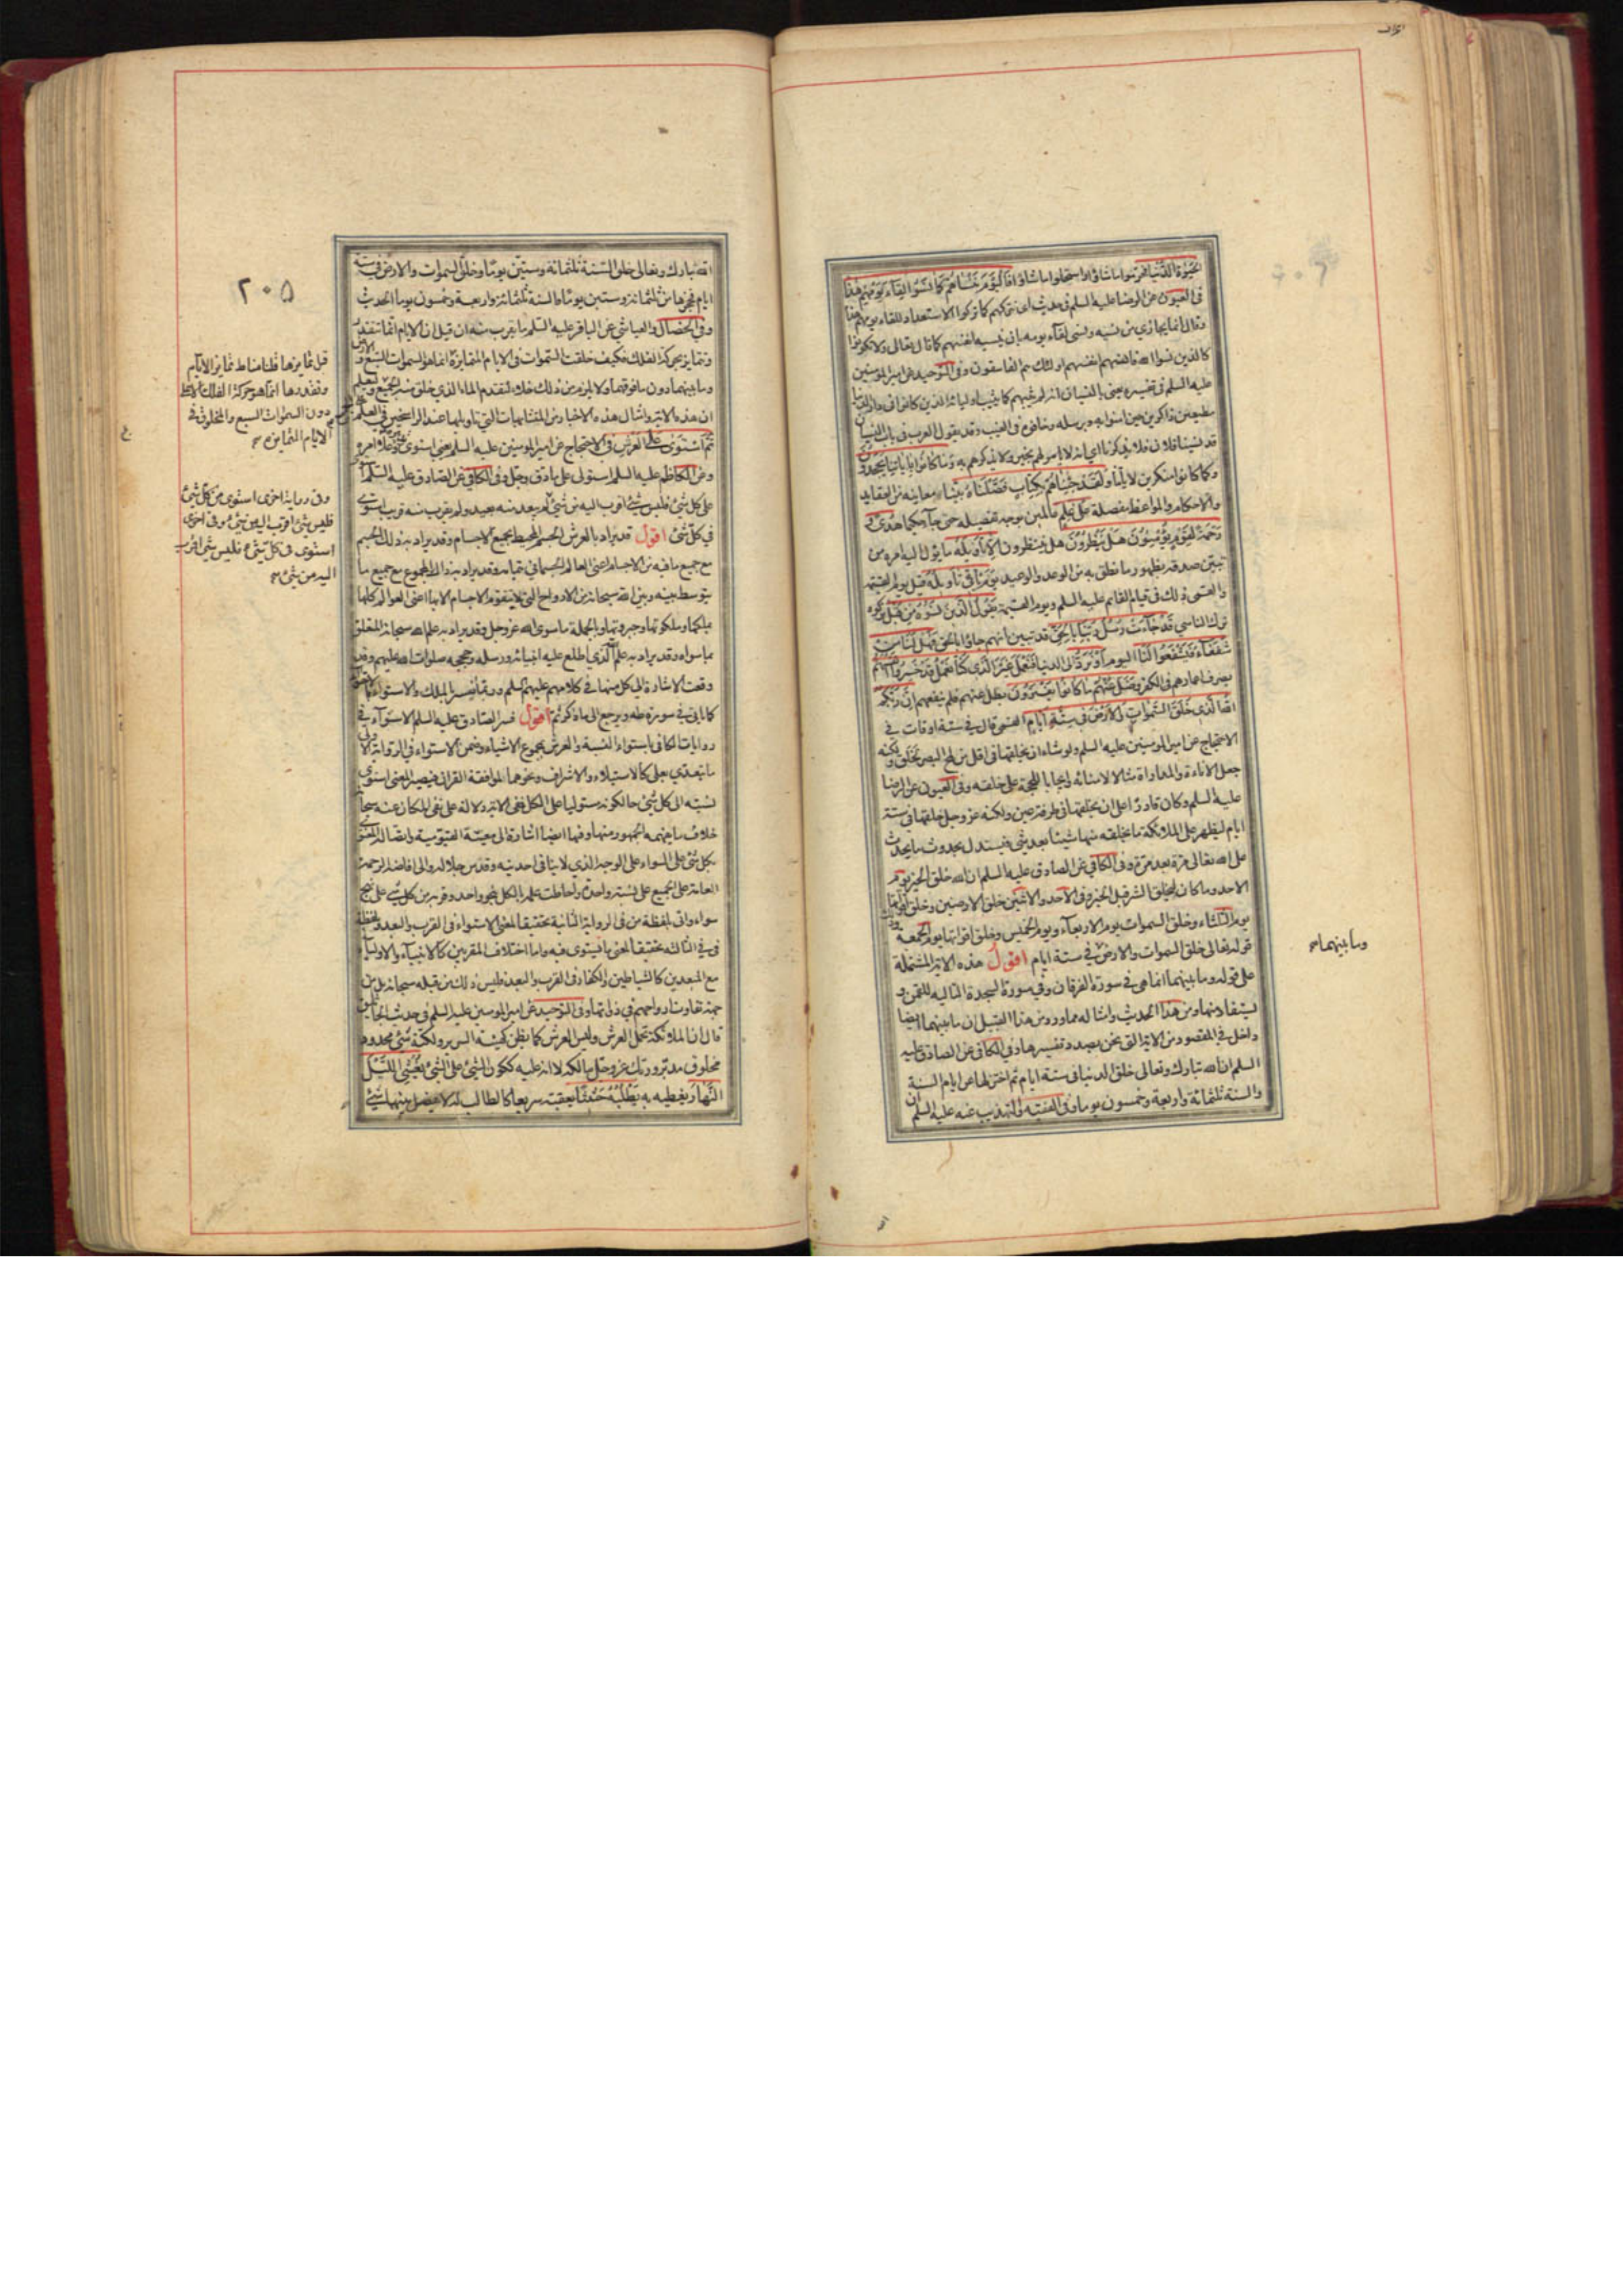 الحيوة الدنيا فحرموا ما شاؤا واستحلوا ما شاؤا فاليوم ننسيهم كما نسوا لقاء يومهم هذا
في العيون عن الرضا عليه السلم في حديث اي نتركهم كما تركوا الاستعداد للقاء يومهم هذا
وقال انما يجازي من نسيه ونسى لقاء يومه بان ينسيهم انفسهم كما قال تعالى ولا تكونوا
كالذين نسوا الله فانسيهم انفسهم اولئك هم الفاسقون وفي التوحيد عن امير المؤمنين
عليه السلم في تفسيره يعني بالنسيان انه لم يثبهم كما يثيب اولياءه الذين كانوا في دار الدنيا
مطيعين ذاكرين حين امنوا به وبرسله وخافوه في الغيب وقد يقول العرب في باب النسيان
قد نسينا فلان فلا يذكرنا اي انه لا يامر لهم بخير ولا يذكرهم به وما كانوا باياتنا يجحدون
وكما كانوا منكرين لاياتنا ولقد جئناهم بكتاب فصلناه بينا معانيه من العقايد
والاحكام والمواعظ مفصلة على علم عالمين بوجه تفصيله حتى جاء حكيما هدى و
رحمة لقوم يؤمنون هل ينظرون هل ينتظرون الا تأويله ما يؤل اليه امره من
تبين صدقه بظهور ما نطق به من الوعد والوعيد يوم ياتي تأويله قيل يوم القيمة
والقمي ذلك في قيام القائم عليه السلم ويوم القيمة يقول الذين نسوه من قبل تركوه
ترك الناسي قد جاءت رسل ربنا بالحق قد تبين انهم جاؤا بالحق فهل لنا من
شفعاء فيشفعوا لنا اليوم او نرد الى الدنيا فنعمل غير الذي كنا نعمل قد خسروا انفسهم
بصرف اعمارهم في الكفر وضل عنهم ما كانوا يفترون بطل عنهم فلم ينفعهم ان ربكم
الله الذي خلق السموات والارض في ستة ايام القمي قال في ستة اوقات في
الاحتجاج عن امير المؤمنين عليه السلم ولو شاء ان يخلقها في اقل من لمح البصر لخلق ولكنه
جعل الاناءة والمداراة مثالا لامنائه وايجابا للحجة على خلقه وفي العيون عن الرضا
عليه السلم وكان قادرا على ان يخلقها في طرفة عين ولكنه عز وجل خلقها في ستة
ايام ليظهر على الملائكة ما يخلقه منها شيئا بعد شيء فيستدل بحدوث ما يحدث
على الله تعالى مرة بعد مرة وفي الكافي عن الصادق عليه السلم ان الله خلق الخير يوم
الاحد وما كان ليخلق الشر قبل الخير وفي الاحد والاثنين خلق الارضين وخلق اقواتها
يوم الثلثاء وخلق السموات يوم الاربعاء ويوم الخميس وخلق اقواتها يوم الجمعة وذلك
قوله تعالى خلق السموات والارض في ستة ايام اقول هذه الاية المشتملة
وما بينهما صح
على قوله وما بينهما انما هي في سورة الفرقان وفي سورة السجدة التالية للقمن و
يستفاد منها ومن هذا الحديث وامثاله مما ورد من هذا القبيل ان ما بينهما ايضا
داخل في المقصود من الاية التي نحن بصدد تفسيرها وفي الكافي عن الصادق عليه
السلم ان الله تبارك وتعالى خلق الدنيا في ستة ايام ثم اختزلها عن ايام السنة
والسنة ثلثمائة واربعة وخمسون يوما وفي الفقيه والتهذيب عنه عليه السلم ان
٢٠٥
الله تبارك وتعالى خلق السنة ثلثمائة وستين يوما وخلق السموات والارض في ستة
ايام فحجزها من ثلثمائة وستين يوما فالسنة ثلثمائة واربعة وخمسون يوما الحديث
وفي الخصال والعياشي عن الباقر عليه السلم ما يقرب منه ان قيل ان الايام انما تتقدر
وتتمايز بحركة الفلك فكيف خلقت السموات في الايام المتمايزة انما هو السموات السبع و
وما بينهما دون ما فوقهما ولا يلزم من ذلك خلاء لتقدم الماء الذي خلق منه الجميع وليعلم
ان هذه الاية وامثال هذه الاخبار من المتشابهات التي تاويلها عند الراسخين في العلم
ثم استوى على العرش في الاحتجاج عن امير المؤمنين عليه السلم يعني استوى تدبيره وعلا امره
وعن الكاظم عليه السلم استولى على ما دق وجل وفي الكافي عن الصادق عليه السلم
على كل شيء فليس شيء اقرب اليه من شيء لم يبعد منه بعيد ولم يقرب منه قريب استوى
في كل شيء اقول قد يراد بالعرش الجسم المحيط بجميع الاجسام وقد يراد به ذلك الجسم
مع جميع ما فيه من الاجسام اعني العالم الجسماني بتمامه وقد يراد به ذلك المجموع مع جميع ما
يتوسط بينه وبين الله سبحانه من الارواح التي لا يتقوم الاجسام الا بها اعني العوالم كلها
بملكها وملكوتها وجبروتها وبالجملة ما سوى الله عز وجل وقد يراد به علم الله سبحانه المتعلق
بما سواه وقد يراد به علمه الذي اطلع عليه انبيائه ورسله وحججه صلوات الله عليهم وقد
وقعت الاشارة الى كل منها في كلامهم عليهم السلم وربما يفسر بالملك والاستواء
كما ياتي في سورة طه ويرجع الى ما ذكر ثم اقول فسر الصادق عليه السلم الاستواء في
روايات الكافي باستواء النسبة والعرش بمجموع الاشياء وضمن الاستواء في الرواية الاولى
ما يتعدى بعلى كالاستيلاء والاشراف ونحوهما لموافقة القران فيصير المعنى استوى
نسبته الى كل شيء حالكونه مستوليا على الكل ففي الاية دلالة على نفي المكان عنه سبحانه
خلاف ما يفهمه الجمهور منها وفيها ايضا اشارة الى معيته القيومية واتصاله المعنوي
بكل شيء على السواء على الوجه الذي لا ينافي احديته وقدس جلاله والى افاضة الرحمة
العامة على الجميع على نسبة واحدة واحاطة علمه بالكل بنحو واحد وقربه من كل شيء على نهج
سواء واتى بلفظة من في الرواية الثانية تحقيقا لمعنى الاستواء في القرب والبعد وبلفظة
في في الثالثة تحقيقا لمعنى ما يستوي فيه واما اختلاف المقربين كالانبياء والاولياء
مع المبعدين كالشياطين والكفار في القرب والبعد فليس ذلك من قبله سبحانه بل من
جهة تفاوت ارواحهم في ذواتها وفي التوحيد عن امير المؤمنين عليه السلم في حديث الجاثليق
قال ان الملائكة تحمل العرش وليس العرش كما يظن كهيئة السرير ولكنه شيء محدود
مخلوق مدبر وربك عز وجل مالكه لا انه عليه ككون الشيء على الشيء يغشي الليل
النهار يغطيه به يطلبه حثيثا يعقبه سريعا كالطالب له لا يفصل بينهما شيء
قيل تمايزها قلنا مناط تمايز الايام
وتقدرها انما هو حركة الفلك الاعلى
دون السموات السبع والمخلوق في
الايام المتمايزه صح
وفي رواية اخرى استوى من كل شيء
فليس شيء اقرب اليه من شيء وفي اخرى
استوى في كل شيء فليس شيء اقرب
اليه من شيء صح